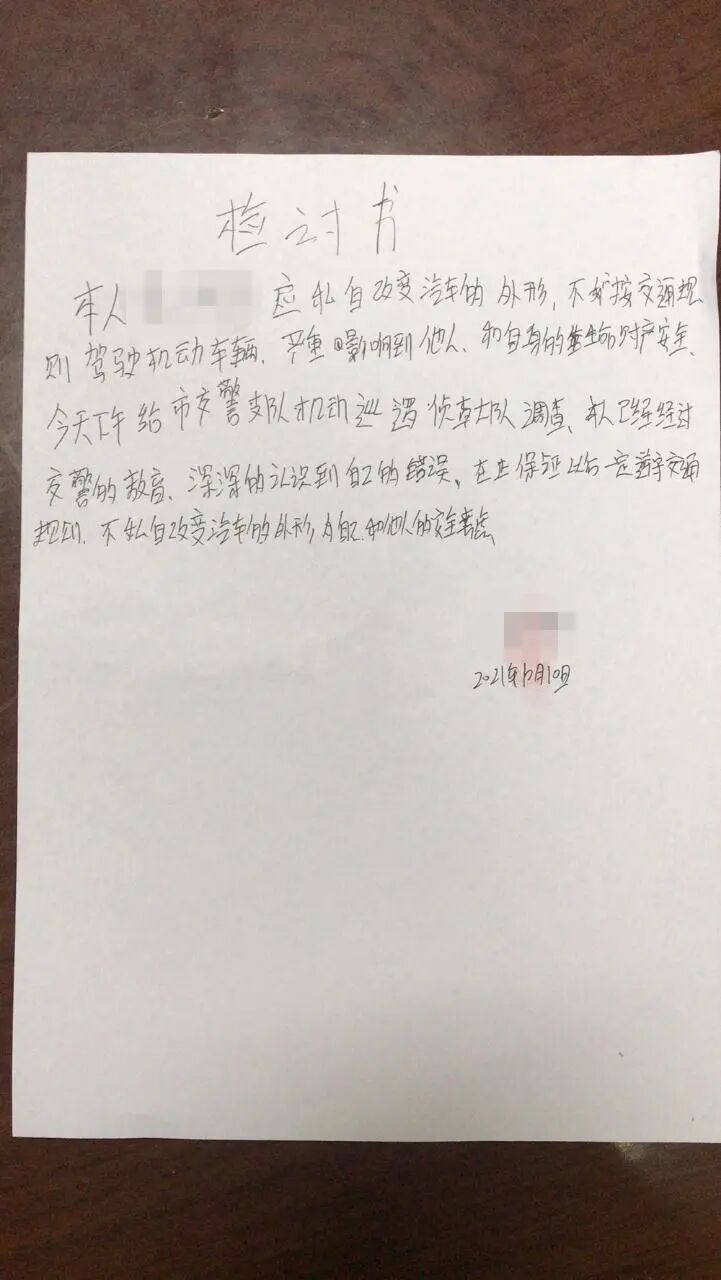 检讨书
本人 应私自改变汽车的外形，不按交通规
则驾驶机动车辆、严重影响到他人、和自身的生命财产安全、
今天下午给市交警支队机动巡逻侦查大队调查、本人已经经过
交警的教育、深深的认识到自己的错误。在止保证以后一定遵守交通
规则、不私自改变汽车的外形为自己和他人的安全着虑
2021年12月10日